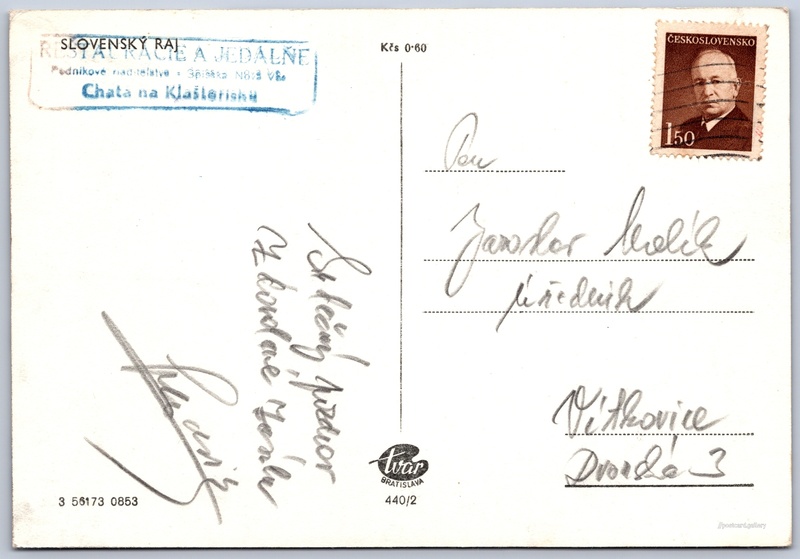 SLOVENSKÝ RAJ
REŠTAURÁCIE A JEDÁLNE
Podnikové riaditeľstvo - Spišská Nová Ves
Chata na Kláštorisku
Kčs 0·60
ČESKOSLOVENSKO
1.50
Pan
Jaroslav Malík
úředník
Vítkovice
Dvorská 3
Srdečný pozdrav
z
tvar
BRATISLAVA
440/2
3 56173 0853